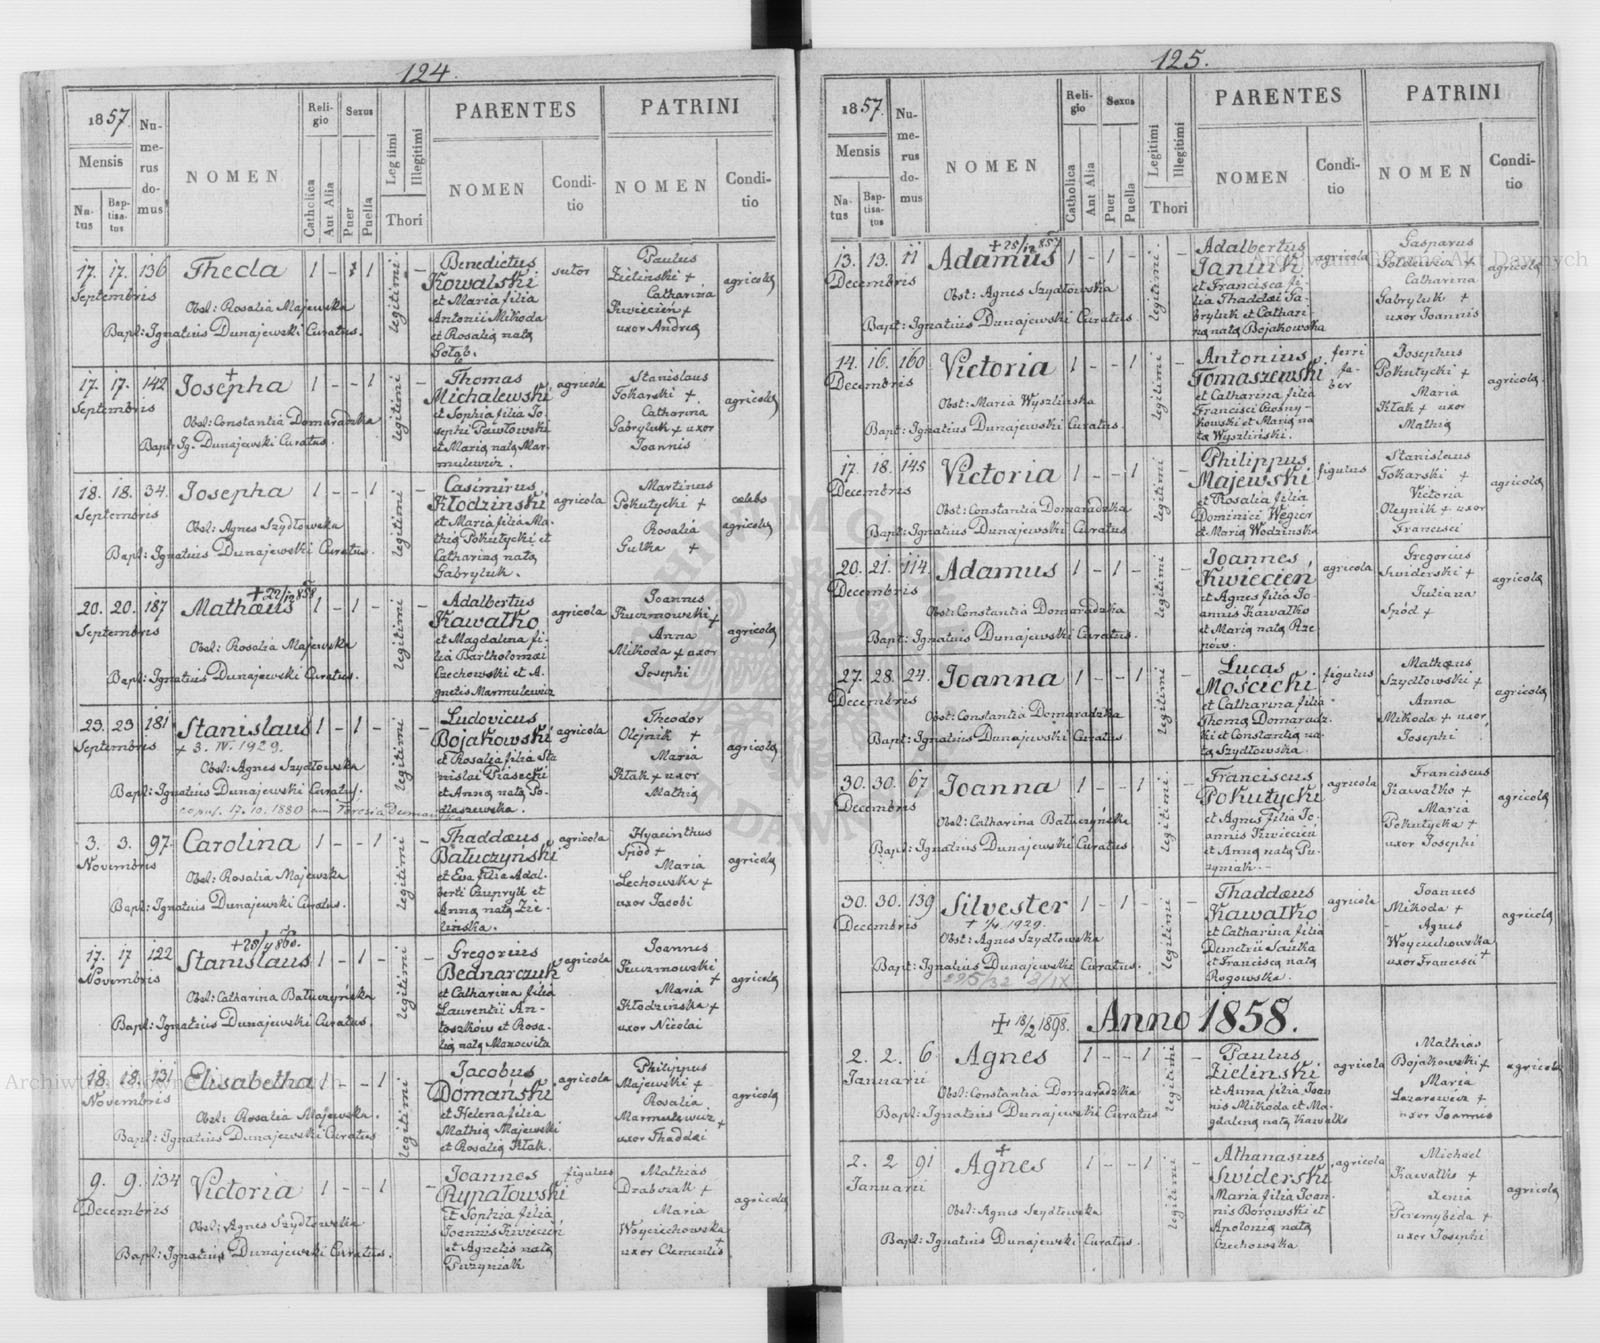 124.
1857.
Mensis
Natus
Baptisatus
Numerus domus
NOMEN
Religio
Catholica
Aut Alia
Sexus
Puer
Puella
Legitimi
Illegitimi
Thori
PARENTES
NOMEN
Conditio
PATRINI
NOMEN
Conditio
17. 17. 136 Thecla 1 - 1 legitimi -
Septembris
Obst: Rosalia Majewska
Bapt: Ignatius Dunajewski Curatus.
Benedictus
Kowalski
et Maria filia
Antonii Mikoda
et Rosalia nata
Gołąb.
sutor
Paulus
Zielinski +
Catharina
Kwiecień +
uxor Andreą
agricola
17. 17. 142 Josepha + 1 - - 1 legitimi -
Septembris
Obst: Constantia Domaradzka
Bapt: Ig. Dunajewski Curatus.
Thomas
Michalewski
et Sophia filia Jo-
sephi Pawłowski
et Maria nata Mar-
mulewicz.
agricola
Stanislaus
Tokarski +
Catharina
Gabryluk + uxor
Joannis
agricola
18. 18. 34. Josepha 1 - - 1 legitimi -
Septembris
Obst: Agnes Szydłowska
Bapt: Ignatius Dunajewski Curatus.
Casimirus
Kłodzinski
et Maria filia Ma-
thia Pokutycki et
Catharina nata
Gabryluk.
agricola
Martinus
Pokutycki +
Rosalia
Gulka +
celebs
agricola
20. 20. 187 Mathæus 1 - 1 - legitimi -
+ 22/12 858
Septembris
Obst: Rosalia Majewska
Bapt: Ignatius Dunajewski Curatus.
Adalbertus
Kawałko
et Magdalena fi-
lia Bartholomæi
Czechowski et A-
gnetis Marmulewicz
agricola
Joannes
Kuczmowski +
Anna
Mikoda + uxor
Josephi
agricola
23. 23 181 Stanislaus 1 - 1 - legitimi -
+ 3. IV. 1929.
Septembris
Obst: Agnes Szydłowska
Bapt: Ignatius Dunajewski Curatus.
copul. 17. 10. 1880 cum
Ludovicus
Bojakowski
et Rosalia filia Sta
nislai Piasecki
et Anna nata Po-
dlaszewska.
agricola
Theodor
Olejnik +
Maria
Kłak + uxor
Mathia
agricola
3. 3. 97 Carolina 1 - - 1 legitimi -
Novembris
Obst: Rosalia Majewska
Bapt: Ignatius Dunajewski Curatus.
Thaddæus
Bałuczyński
et Eva filia Adal-
berti Czupryk et
Anna nata Zie-
linska.
agricola
Hyacinthus
Spód +
Maria
Lechowska +
uxor Jacobi
agricola
17. 17 122 Stanislaus 1 - 1 - legitimi -
Novembris
Obst: Catharina Bałuczyńska
Bapt: Ignatius Dunajewski Curatus.
Gregorius
Bednarczuk
et Catharina filia
Laurentii An-
toszków et Rosa-
lia nata Manowita
agricola
Joannes
Kuczmowski
+
Maria
Kłodzińska +
uxor Nicolai
agricola
18. 18. 131 Elisabetha 1 - - 1 legitimi -
Novembris
Obst: Rosalia Majewska.
Bapt: Ignatius Dunajewski Curatus
Jacobus
Domański
et Helena filia
Mathia Majewski
et Rosalia Kłak.
agricola
Philippus
Majewski +
Rosalia
Marmulewicz +
uxor Thaddæi
agricola
9. 9. 134 Victoria 1 - - 1 -
Decembris
Obst: Agnes Szydłowska
Bapt: Ignatius Dunajewski Curatus.
Joannes
Rypałowski
et Sophia filia
Joannis Kwiecień
et Agnetis nata
Puzyniak
figulus
Mathias
Drabczak +
Maria
Woyciechowska
uxor Clementis +
agricola
125.
1857.
Mensis
Natus
Baptisatus
Numerus domus
NOMEN
Religio
Catholica
Aut Alia
Sexus
Puer
Puella
Legitimi
Illegitimi
Thori
PARENTES
NOMEN
Conditio
PATRINI
NOMEN
Conditio
13. 13. 11 Adamus 1 - 1 - legitimi -
+ 25/12 857
Decembris
Obst: Agnes Szydłowska
Bapt: Ignatius Dunajewski Curatus.
Adalbertus
Janiuk
et Francisca fi-
lia Thaddæi Ga-
bryluk et Cathari-
na nata Bojakowska
agricola
Gasparus
Catharina
Gabryluk +
uxor Joannis
agricola
14. 16. 160 Victoria 1 - - 1 legitimi -
Decembris
Obst: Maria Wyszlinska
Bapt: Ignatius Dunajewski Curatus.
Antonius
Tomaszewski
et Catharina filia
Francisci Czorny-
kowski et Maria na-
ta Wyszliński.
ferri
fa-
ber
Josephus
Pokutycki +
Maria
Kłak + uxor
Mathia
agricola
17. 18. 145 Victoria 1 - - 1 legitimi -
Decembris
Obst: Constantia Domaradzka
Bapt: Ignatius Dunajewski Curatus
Philippus
Majewski
et Rosalia filia
Dominici Węgier
et Maria Wodzinska
figulus
Stanislaus
Tokarski +
Victoria
Oleynik + uxor
Francisci
agricola
20. 21. 114. Adamus 1 - 1 - legitimi -
Decembris
Obst: Constantia Domaradzka
Bapt: Ignatius Dunajewski Curatus.
Joannes
Kwiecień
et Agnes filia Jo-
annis Kawałko
et Maria nata Rze-
pców.
agricola
Gregorius
Świderski +
Juliana
Spód +
agricola
27. 28. 24. Joanna 1 - - 1 legitimi -
Decembris
Obst: Constantia Domaradzka
Bapt: Ignatius Dunajewski Curatus
Lucas
Mościcki
et Catharina filia
Thoma Domaradz-
ki et Constantia na-
ta Szydłowska
figulus
Mathæus
Szydłowski +
Anna
Mikoda + uxor
Josephi
agricola
30. 30. 67 Joanna 1 - - 1 legitimi -
Decembris
Obst: Catharina Bałuczyńska
Bapt: Ignatius Dunajewski Curatus.
Franciscus
Pokutycki
et Agnes filia Jo-
annis Kwiecień
et Anna nata Pu-
zyniak.
agricola
Franciscus
Kawałko +
Maria
Pokutycka +
uxor Josephi
agricola
30. 30. 139 Silvester 1 - 1 - legitimi -
1929.
Decembris
Obst: Agnes Szydłowska
Bapt: Ignatius Dunajewski Curatus.
Thaddæus
Kawałko
et Catharina filia
Demetrii Sawka
et Francisca nata
Rogowska.
agricola
Joannes
Mikoda +
Agnes
Woyciechowska
uxor Francisci +
agricola
+ 18/2 1898. Anno 1858.
2. 2. 6 Agnes 1 - - 1 legitimi -
Januarii
Obst: Constantia Domaradzka
Bapt: Ignatius Dunajewski Curatus
Paulus
Zielinski
et Anna filia Joan-
nis Mikoda et Ma-
gdalena nata Kawałko
agricola
Mathias
Bojakowski +
Maria
Lazarewicz +
uxor Joannis
agricola
2. 2 91 Agnes + 1 - - 1 legitimi -
Januarii
Obst: Agnes Szydłowska
Bapt: Ignatius Dunajewski Curatus.
Athanasius
Swiderski
Maria filia Joan-
nis Borowski et
Apolonia nata
Czechowska
agricola
Michael
Kawałko +
Xenia
Peremybida +
uxor Josephi
agricola